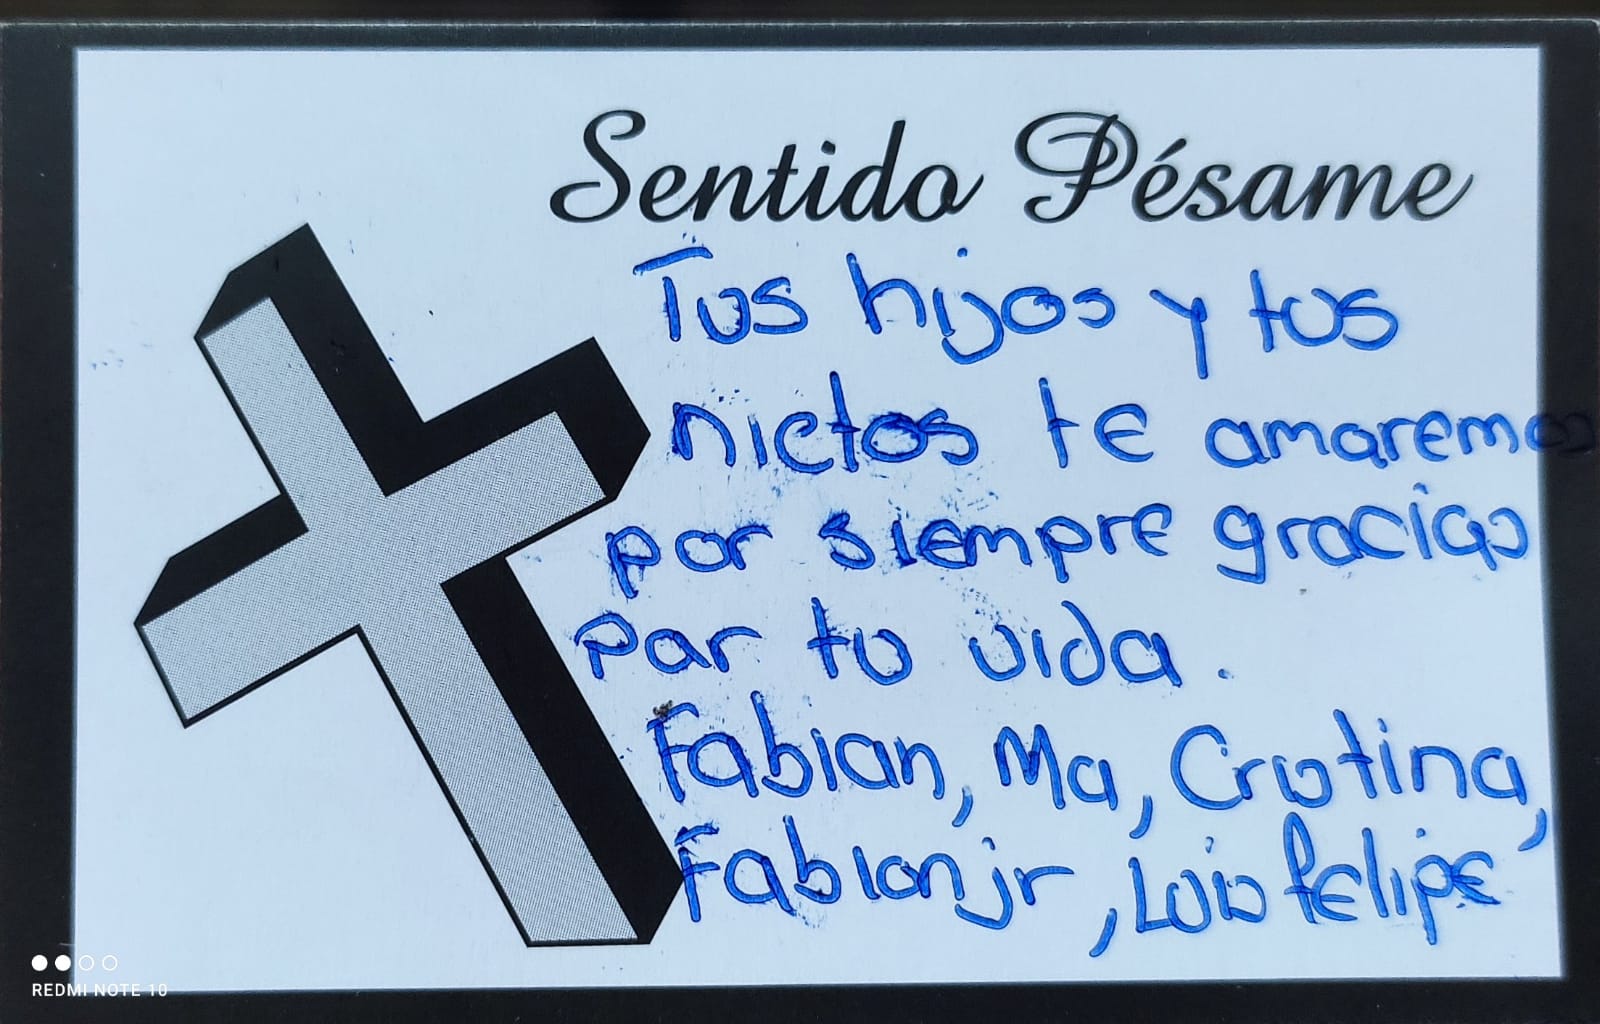 Sentido Pésame
Tus hijos y tus
nietos te amaremos
por siempre gracias
Por tu vida.
Fabian, Ma, Cristina,
Fabian jr, Luis Felipe
REDMI NOTE 10